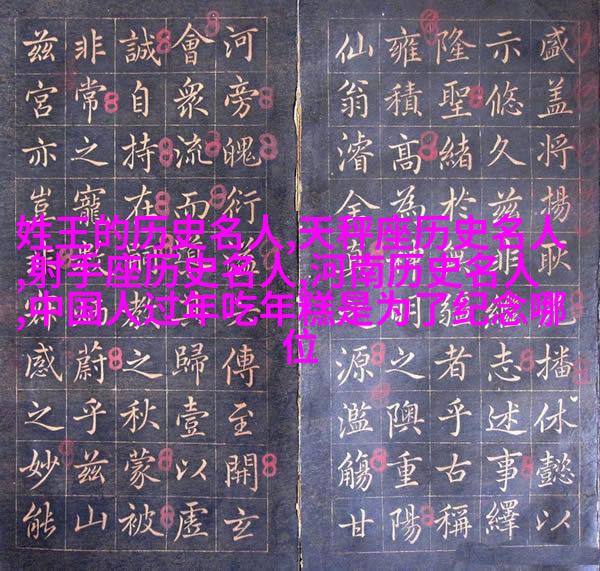 姓王的历史名人,天秤座历史名人
,射手座历史名人,河南历史名人
,中国人过年吃年糕是为了纪念哪
位
盛盖将揚耿播休懿以
示悠久兹非志述事繹
隆聖緒於疆者乎古稱
雍積高為明之隩重陽
仙翁濬全真源濫觴甘
河旁魄衍傳至開玄
會衆流而歸壹以虛
誠自持在教之秋蒙被
非常之寵蔚乎兹山
兹宮亦豈感之妙能